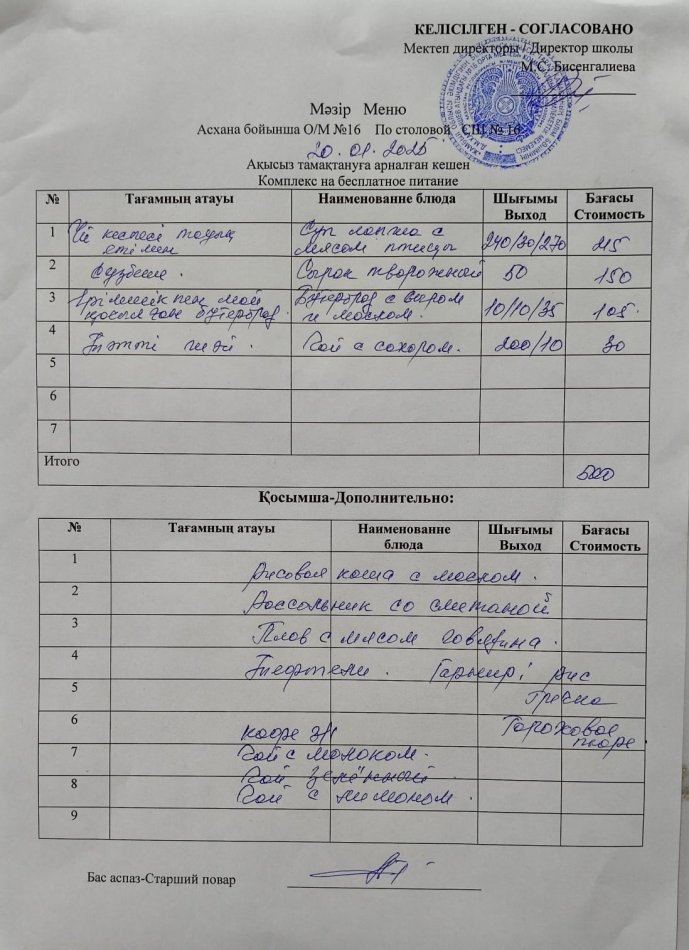 КЕЛІСІЛГЕН - СОГЛАСОВАНО
Мектеп директоры / Директор школы
М.С. Бисенгалиева
Мәзір Меню
Асхана бойынша О/М №16 По столовой СШ № 16
20.01.2025
Ақысыз тамақтануға арналған кешен
Комплекс на бесплатное питание
№ Тағамның атауы Наименованне блюда Шығымы Выход Бағасы Стоимость
1 Үй кеспесі тауық етімен Суп лапша с мясом птицы 240/30/270 215
2 Сүзбеше. Сырок творожный 50 150
3 Ірімшік пен май қосылған бутерброд. Бутерброд с сыром и маслом. 10/10/35 105.
4 Тәтті шай. Чай с сахаром. 200/10 30
5
6
7
Итого 500
Қосымша-Дополнительно:
№ Тағамның атауы Наименованне блюда Шығымы Выход Бағасы Стоимость
1 Рисовая каша с маслом.
2 Рассольник со сметаной
3 Плов с мясом говядина.
4 Тефтели. Гарнир: рис
5 Гречка
6 Кофе 3/1 Гороховое пюре.
7 Чай с молоком.
Чай зелённый
8 Чай с лимоном.
9
Бас аспаз-Старший повар